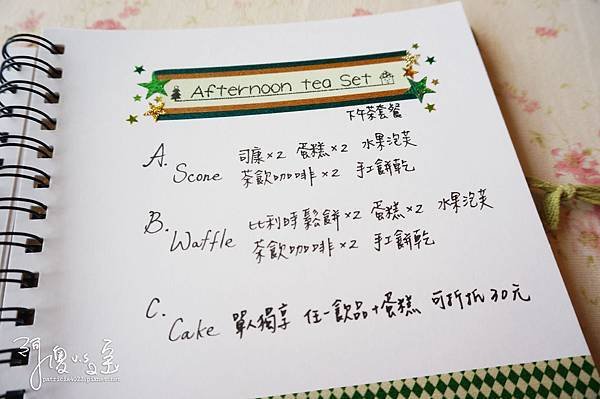 Afternoon tea Set
下午茶套餐
A. Scone 司康×2 蛋糕×2 水果泡芙
茶飲咖啡×2 手工餅乾
B. Waffle 比利時鬆餅×2 蛋糕×2 水果泡芙
茶飲咖啡×2 手工餅乾
C. Cake 單人獨享 任一飲品+蛋糕 可折抵30元